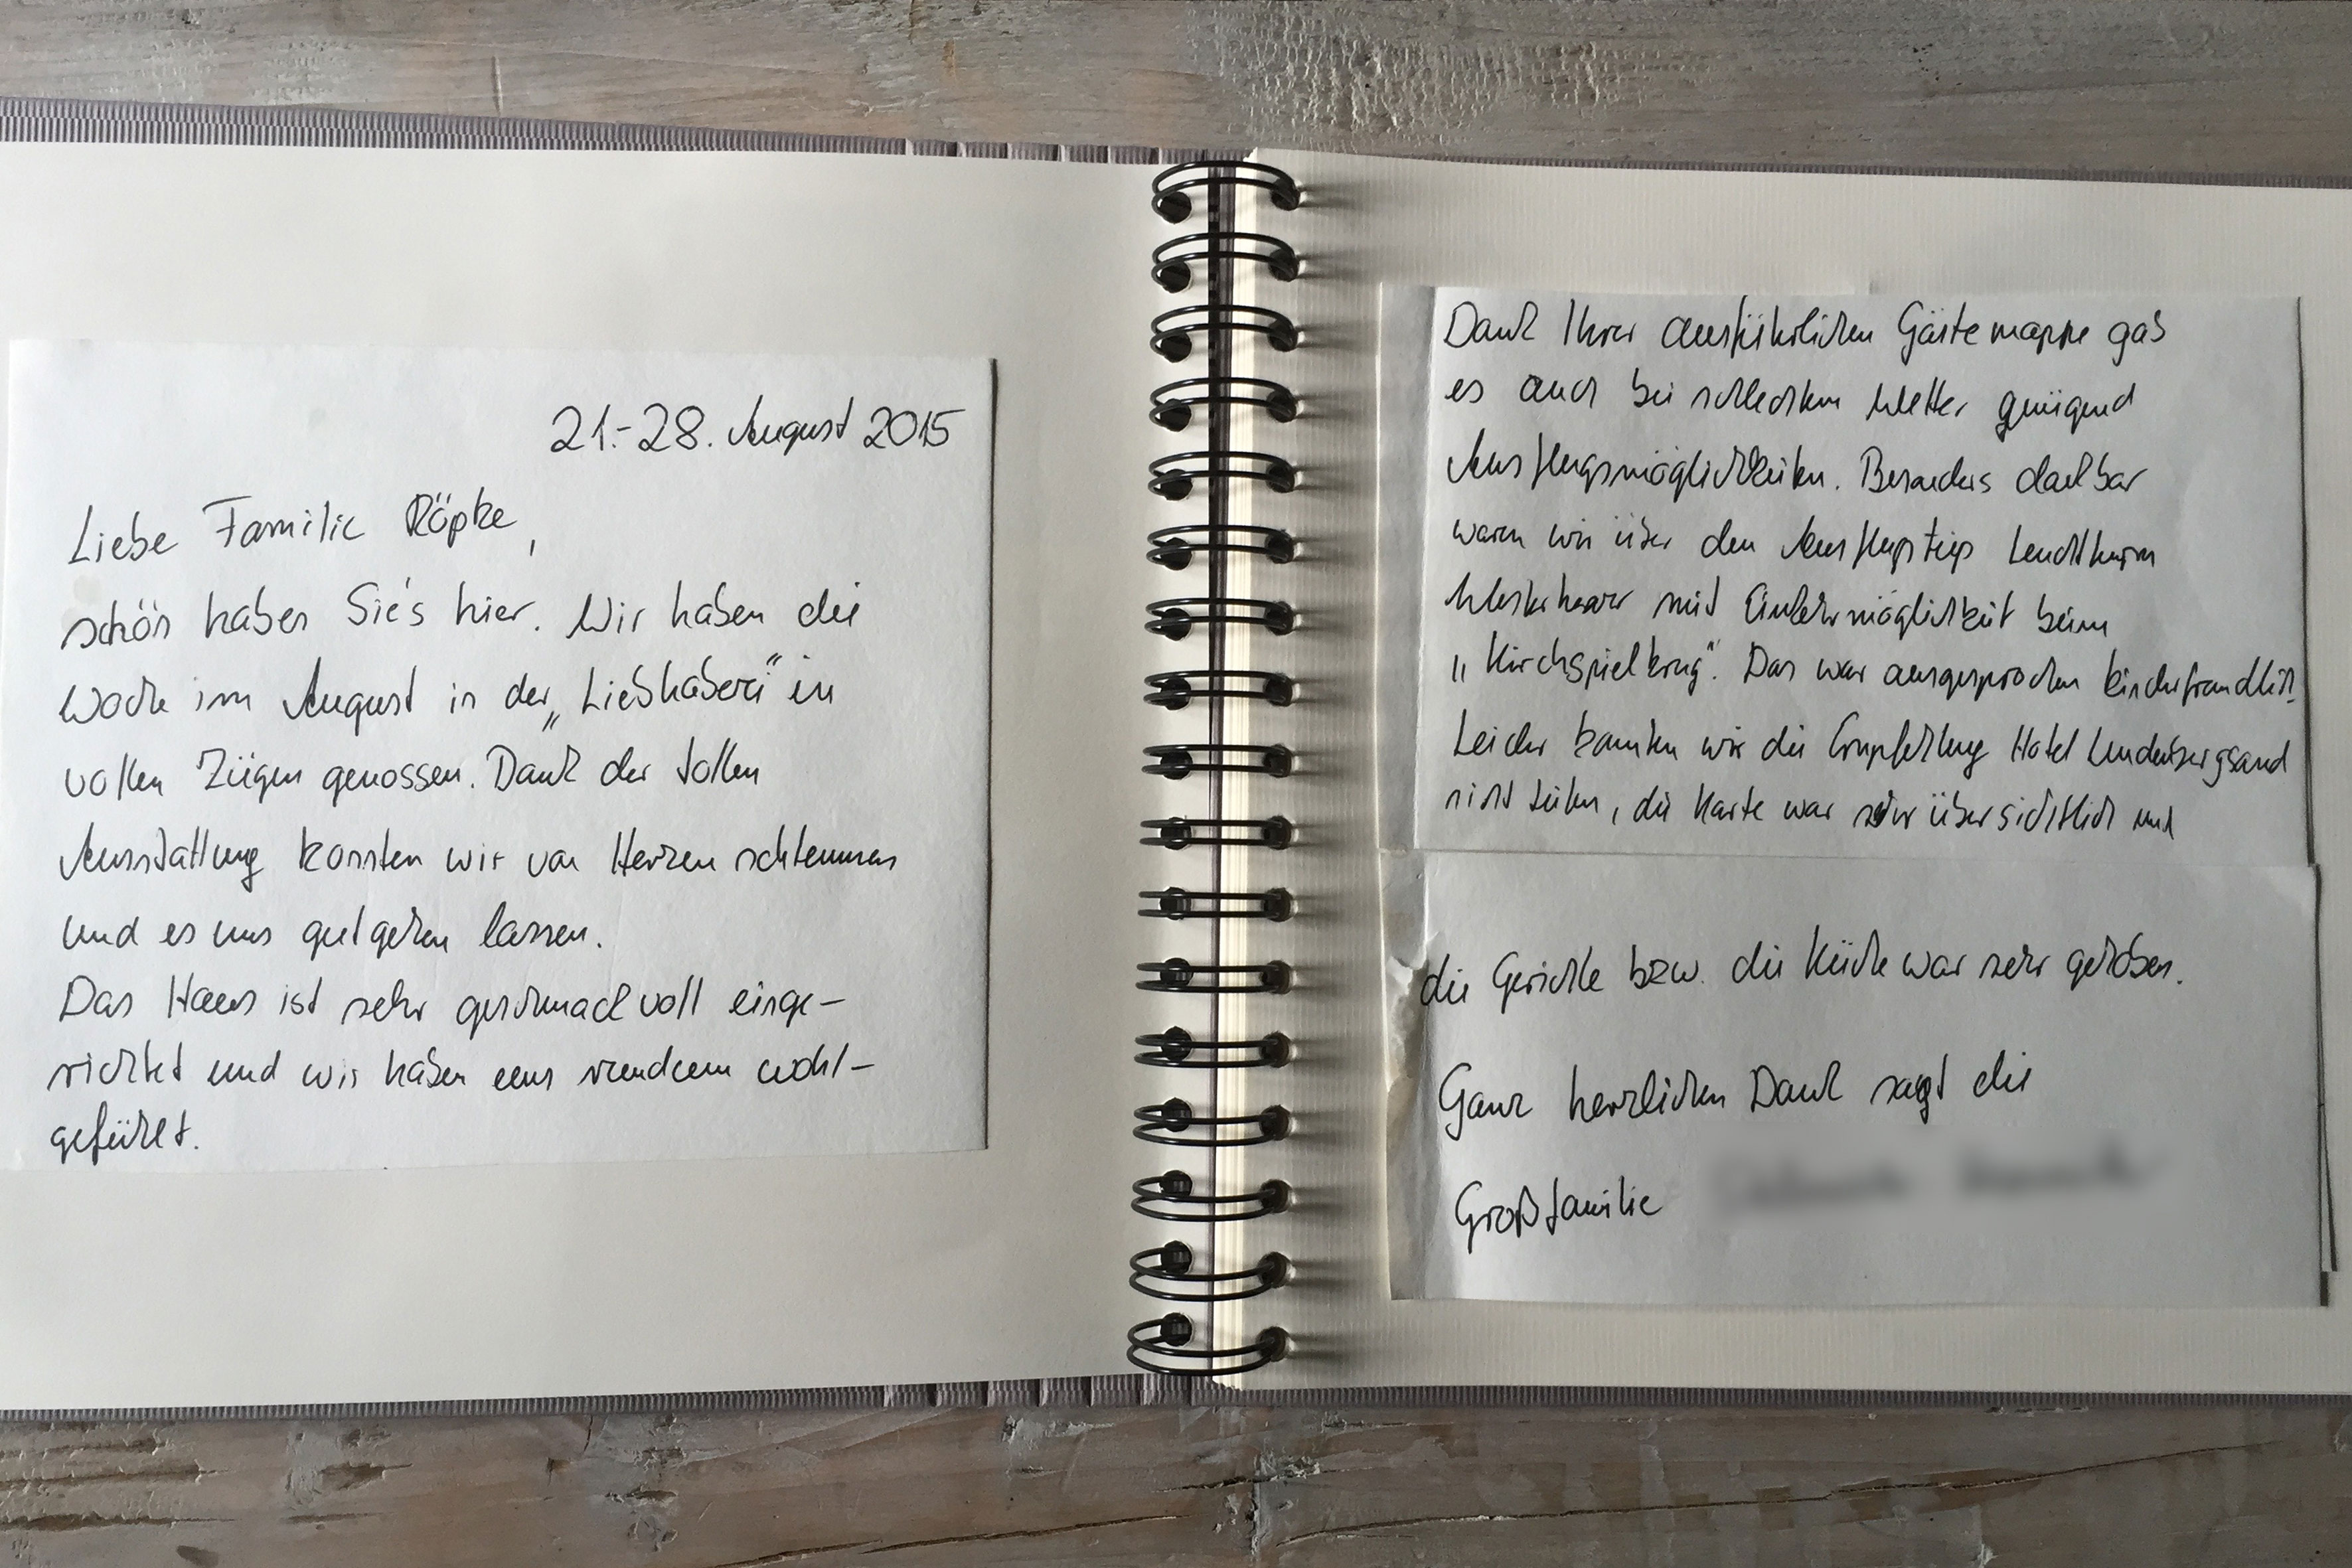 21.-28. August 2015
Liebe Familie Röpke,
schön haben Sie's hier. Wir haben die
Woche im August in der „Liebhaberei" in
vollen Zügen genossen. Dank der tollen
Ausstattung konnten wir von Herzen schlemmen
und es uns gutgehen lassen.
Das Haus ist sehr geschmackvoll einge-
richtet und wir haben uns rundum wohl-
gefühlt.
Dank Ihrer ausführlichen Gästemappe gab
es auch bei schlechtem Wetter genügend
Ausflugsmöglichkeiten. Besonders dankbar
waren wir über den Ausflugstip Leuchtturm
Westerhever mit Einkehrmöglichkeit beim
„Kirchspielkrug". Das war ausgesprochen kinderfreundlich.
Leider konnten wir die Empfehlung Hotel Lundenbergsand
nicht teilen, die Karte war sehr übersichtlich und
die Gerichte bzw. die Küche war sehr gehoben.
Ganz herzlichen Dank sagt die
Großfamilie